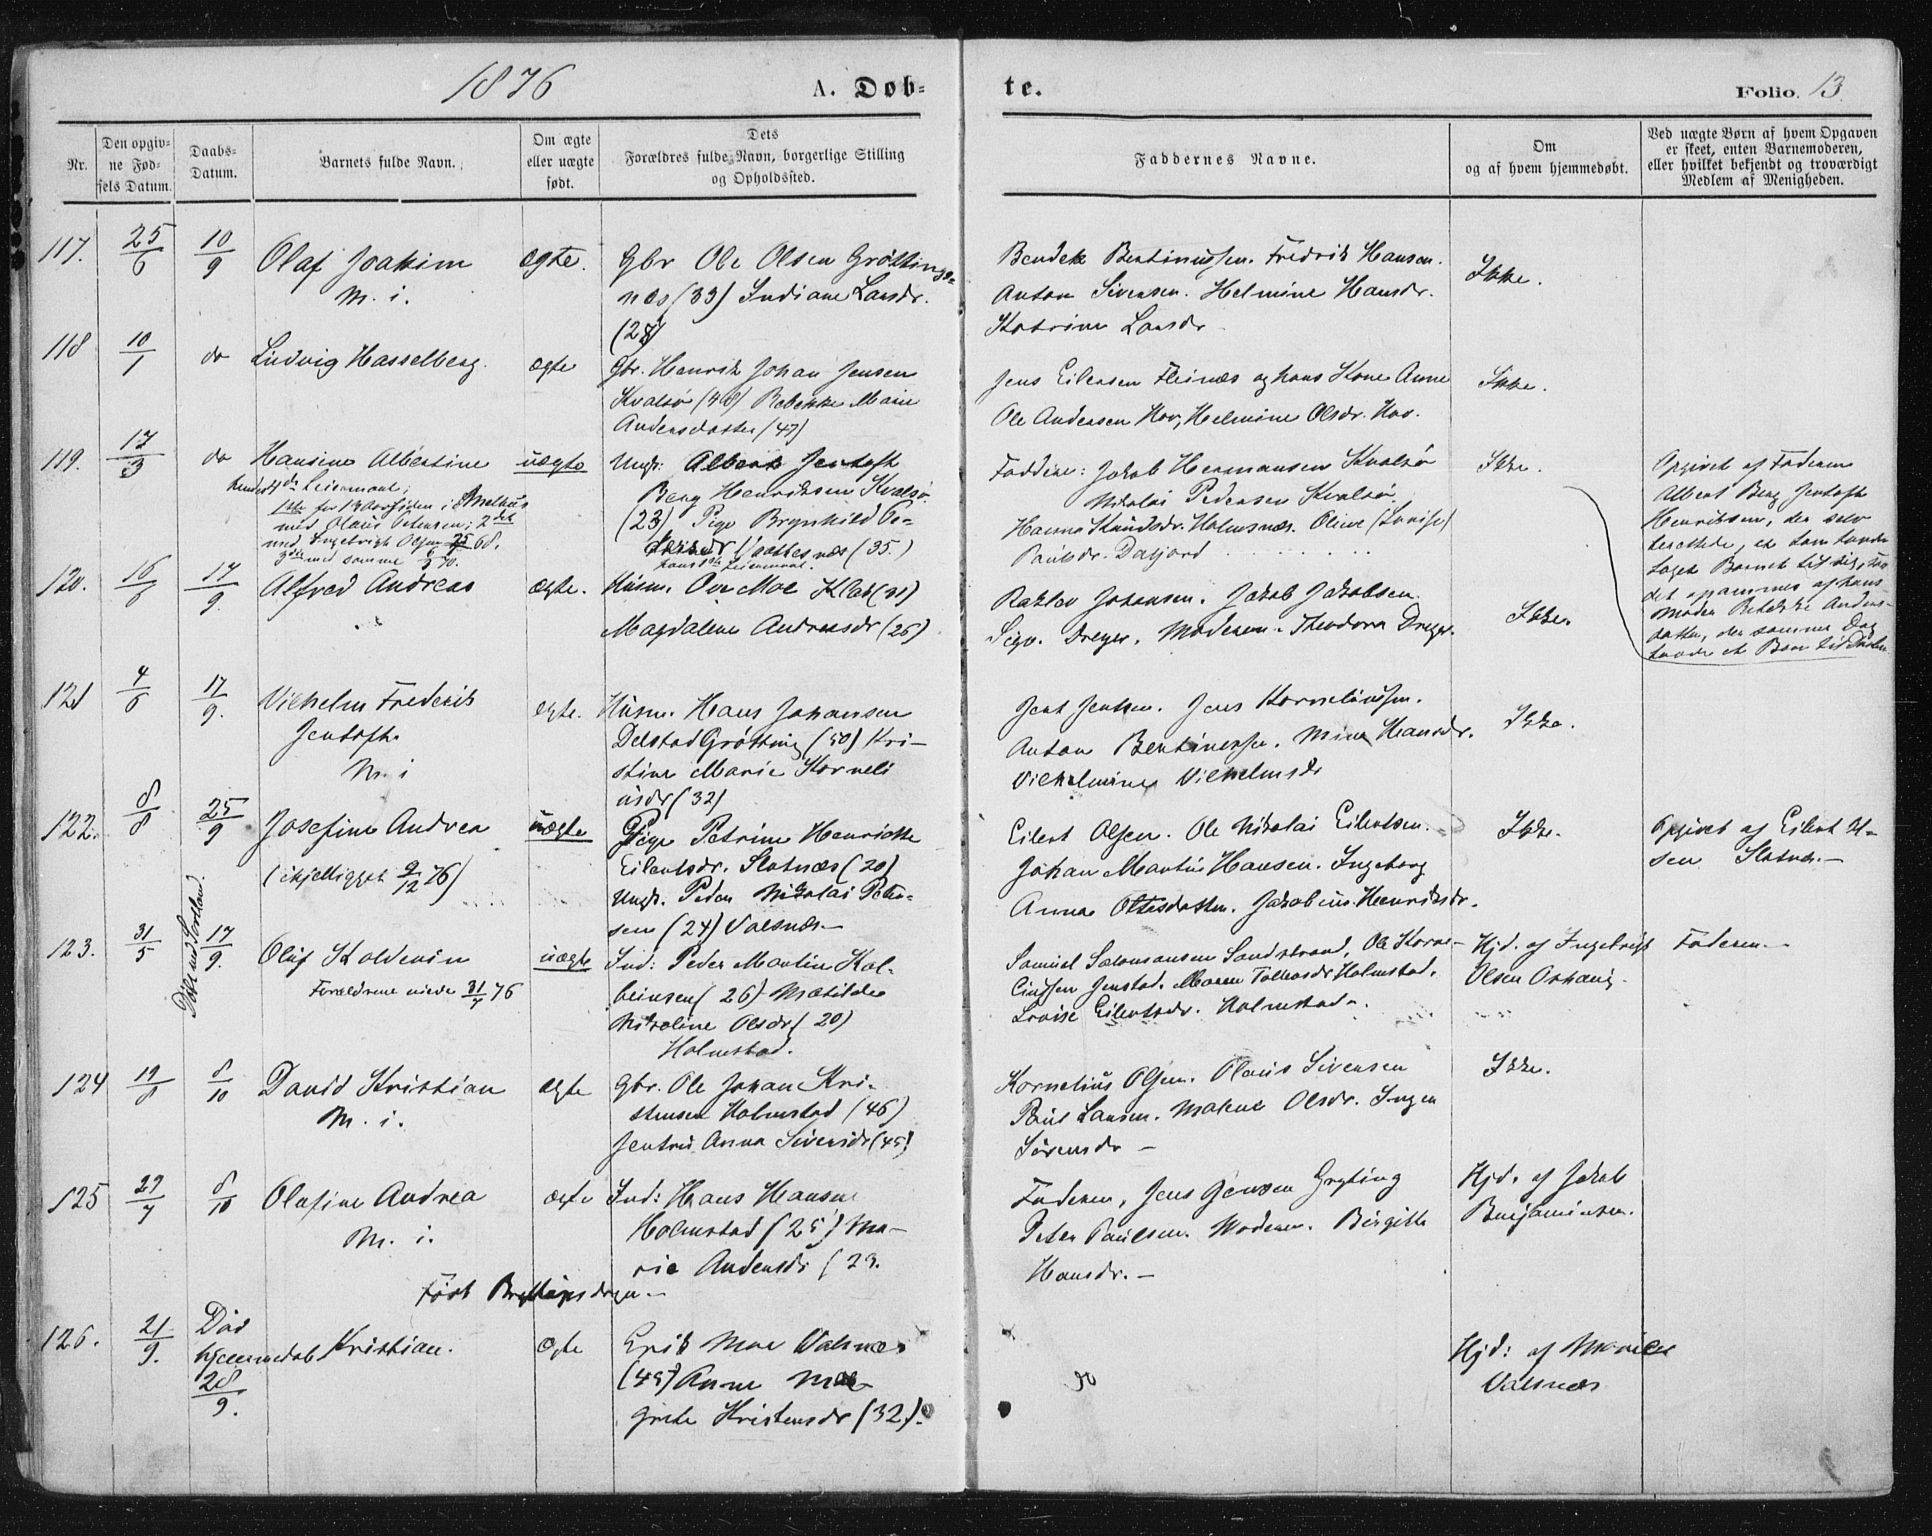 1876
A. Døb-
te.
Folio. 13.
Nr.
Den opgiv-
ne Fød-
sels Datum.
Daabs-
Datum.
Barnets fulde Navn.
Om ægte
eller uægte
født.
Dets
Forældres fulde Navn, borgerlige Stilling
og Opholdssted.
Faddernes Navne.
Om
og af hvem hjemmedøbt.
Ved uægte Børn af hvem Opgaven
er skeet, enten Barnemoderen,
eller hvilket bekjendt og troværdigt
Medlem af Menigheden.
117. 25/6 10/9 Olaf Joakim ægte. Gbr Ole Olsen Grøttings-
M. i. næs (33) Indiane Larsdr.
(28)
Bendek Bentinussen. Fredrik Hansen.
Anton Sivensen. Helmine Hansdr.
Katrine Larsdr
Ikke.
118 10/1 do Ludvig Hasselberg. ægte Gbr. Henrik Johan Jensen
Kvalsø (48) Rebekke Marie
Andersdatter (47)
Jens Eilersen Fleinæs og hans Kone Anne
Ole Andersen Hov, Helmine Olsdr. Hov.
Ikke.
119. 17/3 do Hansine Albertine uægte Ungk. Albert Jentoft
hendes 4de Leiermaal;
1ste for 13 Aar siden i
med Olaus Petersen; 2det
med Ingebrigt Olsen 68.
3die med samme 70.
Berg Henriksen Kvalsø
(23) Pige Brynhild Pe-
Vottesnæs (35.)
hans 1ste Leiermaal.
Faddere: Jakob Hermansen Kvalsø
Nikolai Pedersen Kvalsø.
Hanna Knudsdr. Holmsnæs. Oline (Lovise)
Paulsdr. Dafjord
Ikke.
Opgivet af Faderen
Albert Berg Jentoft
Henriksen, der selv
berettede, at han havde
taget Barnet til sig, da
det ammes af hans
Moder Rebekke Anders-
datter, der samme Dag
havde et Barn til Daaben
120. 16/6 17/9 Alfred Andreas ægte. Husm. Ove Moe Klab (31)
Magdalene Andreasdr (26)
Ratlev Johansen. Jakob Jakobsen.
Sigv. Dreyer. Moderen. Theodora Dreyer.
Ikke.
121 4/6 17/9. Vilhelm Frederik ægte. Husm. Hans Johansen
Jentoft.
M. i
Delstad Grøtting (50) Kri-
stine Marie Korneli
usdr (32)
Jent Jentsen. Jens Korneliussen.
Anton Bentinussen. Mina Hansdr.
Vilhelmine Vilhelmsdr
Ikke.
122. 8/8 25/9 Josefine Andrea uægte Pige Petrine Henriette
(ihjelligget 9/12 76)
Eilertsdr. Slotnæs (20)
Ungk. Peder Nikolai Peter-
sen (24) Valsnæs.
Eilert Olsen. Ole Nikolai Eilertsen.
Johan Martin Hansen. Ingeborg
Anna Ottesdatter. Jakobine Henriksdr.
Ikke.
Opgivet af Eilert Ol-
sen Slotnæs.
Døbt ved Sortland.
123. 31/5 17/9. Oluf Koldevin uægte Ind: Peder Martin Kol-
Forældrene viede 31/7 76
beinsen (26) Matilde
Nikoline Olsdr (20)
Holmstad.
Samuel Salomonsen Sandstrand, Ole Korne-
liussen Jenstad. Maren Tollevsdr Holmstad.
Lovise Eilertsdr. Holmstad.
Hjd. af Ingebrigt
Olsen Osvaag.
Faderen.
124 19/8 8/10 David Kristian ægte Gbr. Ole Johan Kri-
M. i.
stensen Holmstad (46)
Jentrus Anna Siversdr (45)
Kornelius Olsen. Olaus Sivensen
Paul Larsen. Malene Olsdr. Inger
Sørensdr
Ikke.
125 27/7 8/10 Olafine Andrea ægte Ind: Hans Hansen
M. i.
Holmstad (25) Ma-
rie Andersdr (23.
Født Bryllupsdagen.
Faderen, Jens Jensen Gryting
Peter Paulsen. Moderen. Birgitte
Hansdr.
Hjd. af Jakob
Benjaminsen.
126. 21/9. Død
hjemmedøb
28/9.
Kristian. ægte Erik Moe Valsnæs
(45) Anne Mar-
grete Kristensdr (32).
Hjd: af
Valsnæs